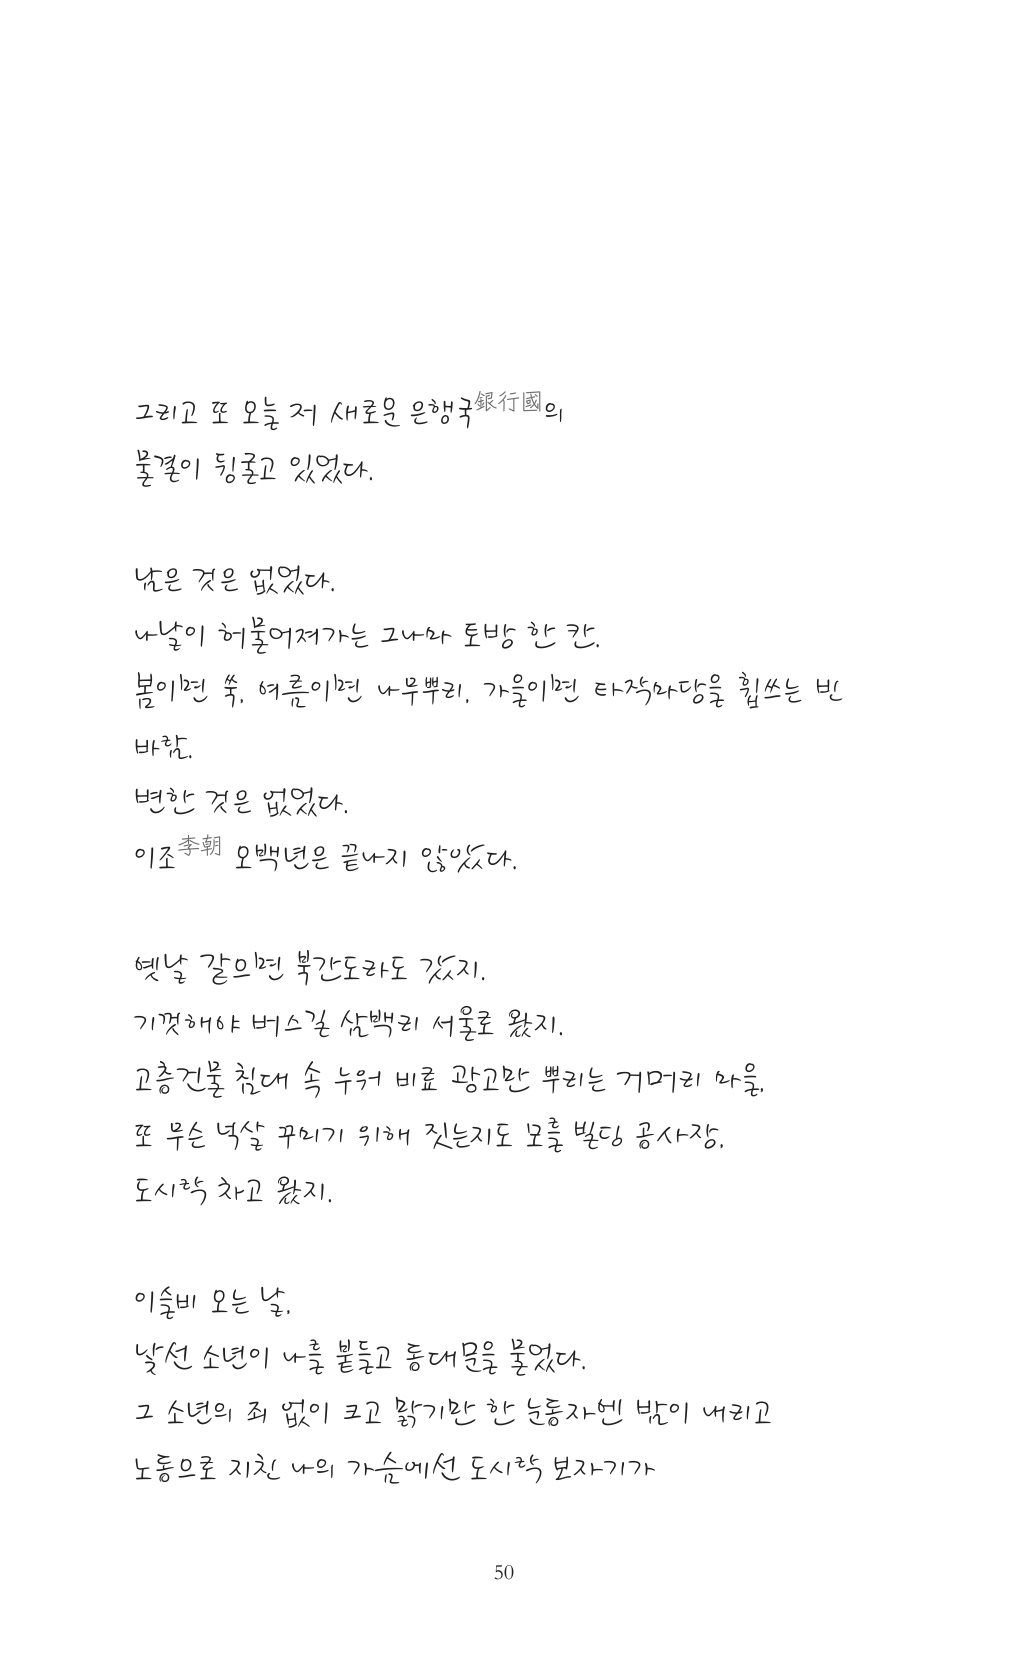 그리고 또 오늘 저 새로운 은행국銀行國의
물결이 뒹굴고 있었다.
남은 것은 없었다.
나날이 허물어져가는 그나마 토방 한 칸.
봄이면 쑥, 여름이면 나무뿌리, 가을이면 타작마당을 휩쓰는 빈
바람.
변한 것은 없었다.
이조李朝 오백년은 끝나지 않았다.
옛날 같으면 북간도라도 갔지.
기껏해야 버스길 삼백리 서울로 왔지.
고층건물 침대 속 누워 비료 광고만 뿌리는 거머리 마을,
또 무슨 넉살 꾸미기 위해 짓는지도 모를 빌딩 공사장,
도시락 차고 왔지.
이슬비 오는 날,
낯선 소년이 나를 붙들고 동대문을 물었다.
그 소년의 죄 없이 크고 맑기만 한 눈동자엔 밤이 내리고
노동으로 지친 나의 가슴에선 도시락 보자기가
50